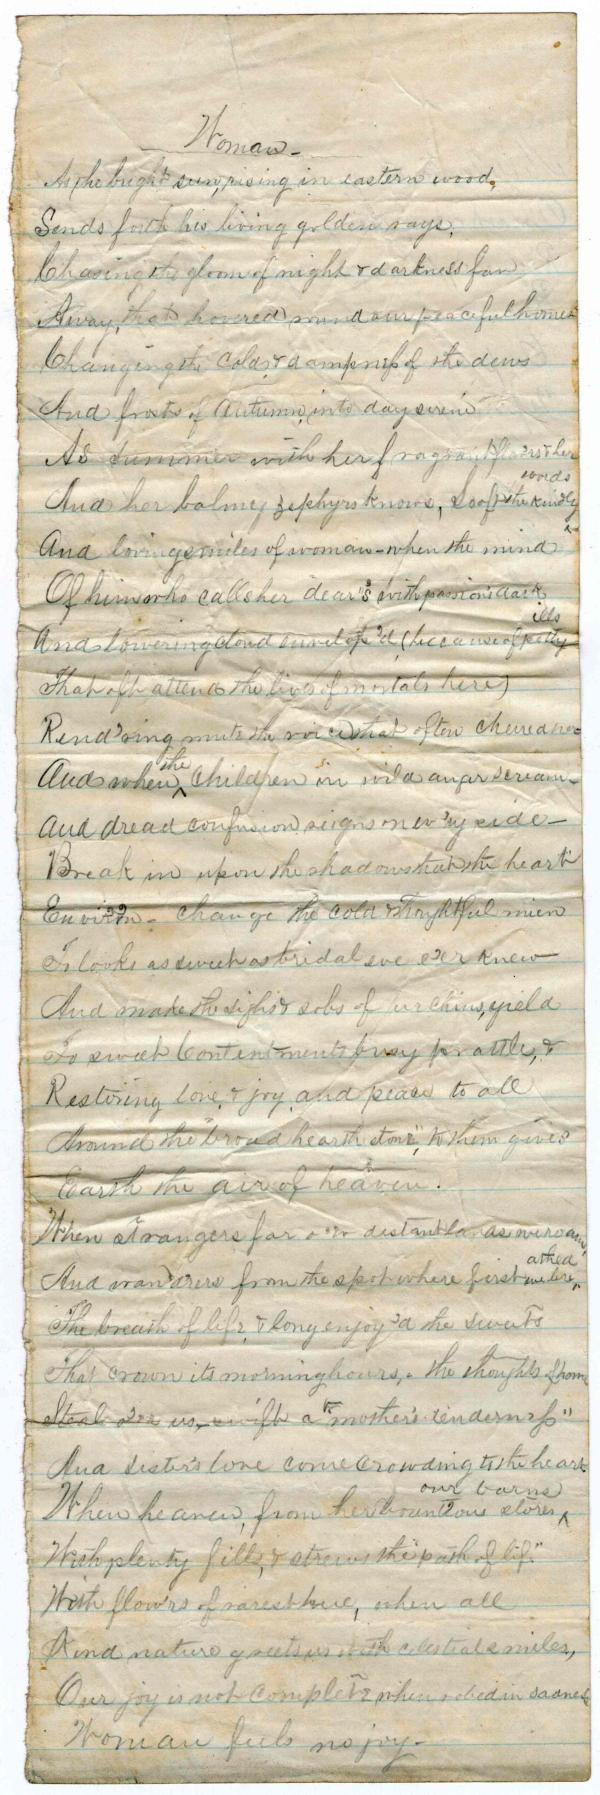 Woman-
As the bright sun, rising in eastern wood,
Sends forth his living golden rays,
Chasing the gloom of night & darkness far
Away, that hovered round our peaceful homes
Changing the cold, & dampness of the dews
And frosts of Autumn, into day serene
As summer with her fragrant flowers & her
And her balmy zephyrs knows, So oft the kindly words
And loving smiles of woman - when the mind
Of him who calls her dear's with passion's dark
And lowering cloud envelop'd, (because of petty ills
That oft attend the lives of mortals here)
Rend'ring mute the voice that often cheered
And when the children in wild anger scream-
And dread confusion reigns on ev'ry side-
Break in upon the shadows that the heart
Environ- change the cold & frightful mien
To looks as sweet as bridal eve e'er knew
And made the sighs & sobs of urchins, yield
To sweet Contentment's busy prattle, &
Restoring love, & joy, and peace to all
Around the "broad hearth stone", to them gives
Earth the air of heaven.
When strangers far o'er distant lands we roam,
And wand'rers from the spot where first we breathed
The breath of life, & long enjoy'd the sweets
That crown its morning hours,- the thoughts of home
Steal o'er us, swift a "mother's tenderness"
And sister's love come crowding to the heart
When heaven, from her bounteous stores, our barns
With plenty fills, & strews the "path of life"
With flow'rs of rarest hue, when all
Kind nature greets us with celestial smiles,
Our joy is not complete when robed in sadness
Woman feels no joy-